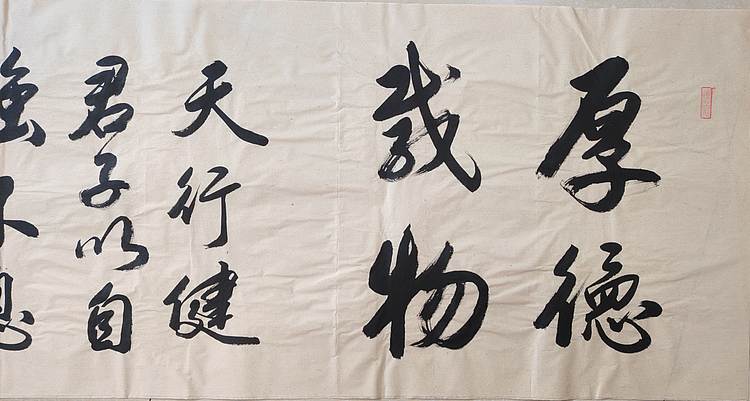 厚德
載物
天行健
君子以自
強不息